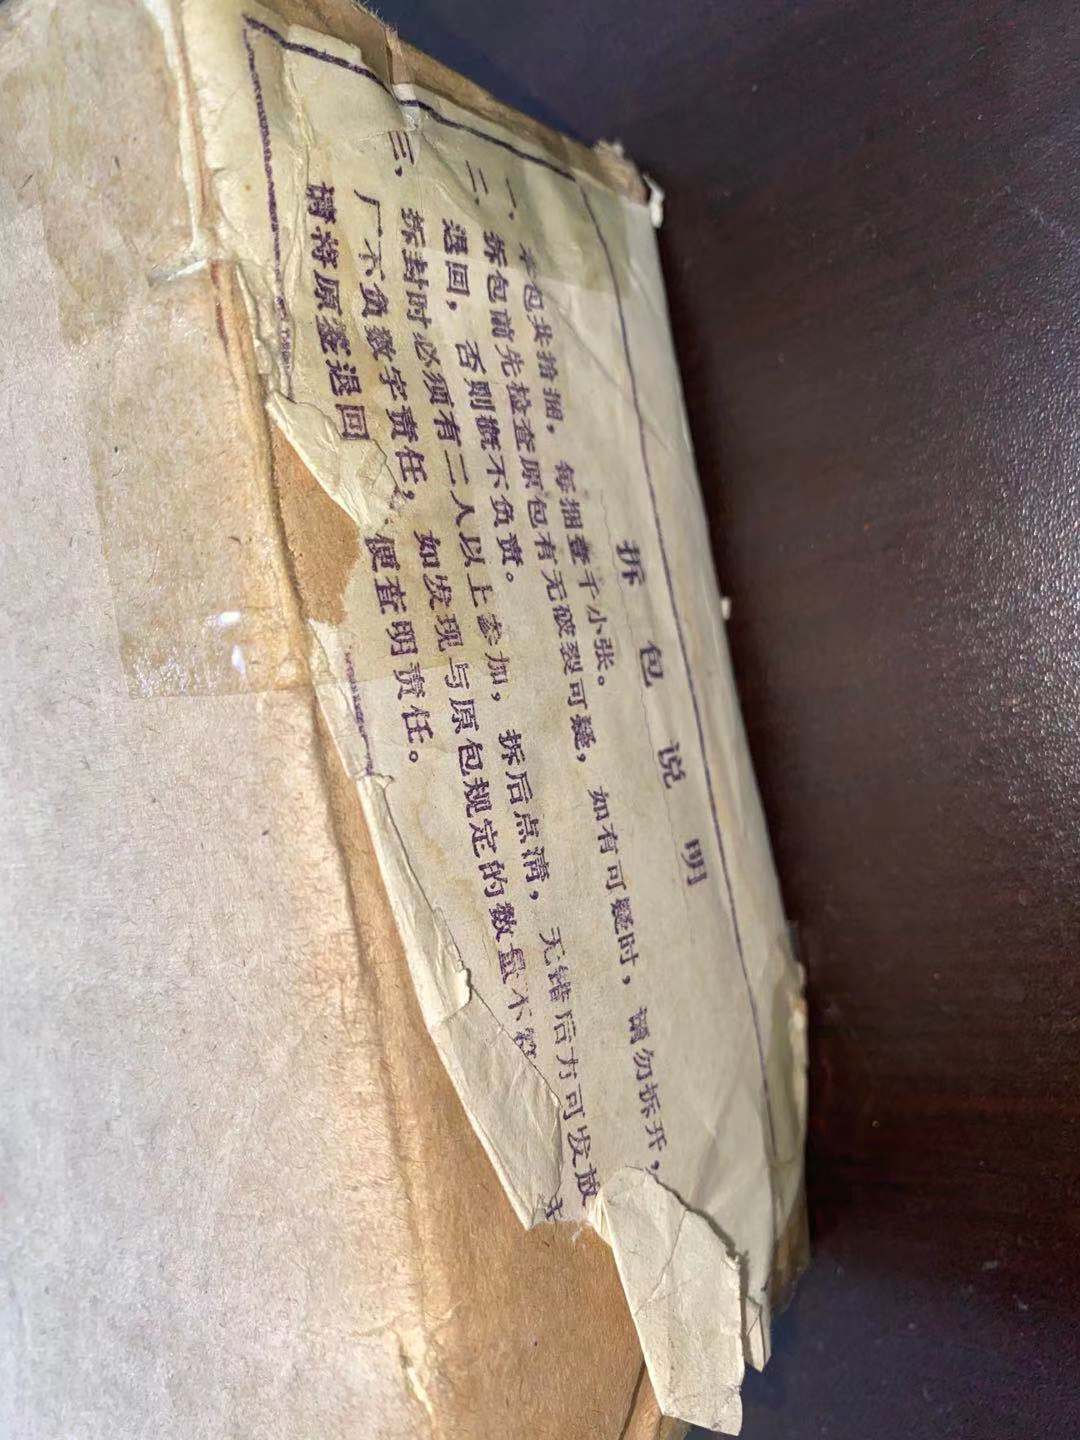 拆包说明
一、本包共拾捆，每捆壹千小张。
二、拆包前先检查原包有无破裂可疑，如有可疑时，请勿拆开，
退回，否则概不负责。
三、拆封时必须有二人以上参加，拆后点清，无错后方可发放
如发现与原包规定的数量不符
厂不负数字责任，
请将原签退回 便查明责任。